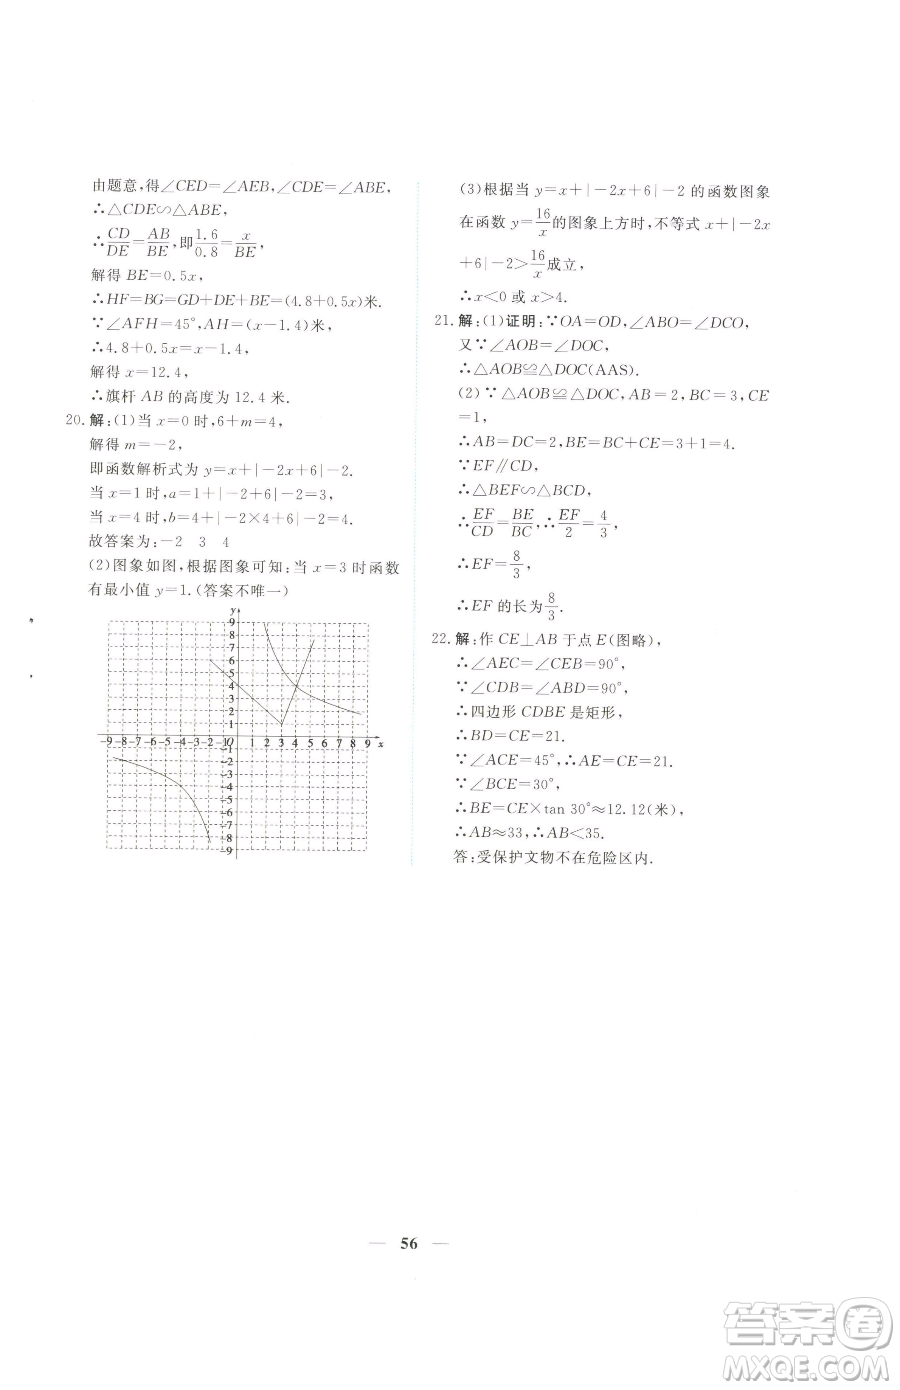 由题意,得∠CED=∠AEB,∠CDE=∠ABE,
∴△CDE∽△ABE,
∴CD/DE=AB/BE,即1.6/0.8=x/BE,
解得 BE=0.5x,
∴HF=BG=GD+DE+BE=(4.8+0.5x)米.
∵∠AFH=45°,AH=(x-1.4)米,
∴4.8+0.5x=x-1.4,
解得 x=12.4,
∴旗杆 AB 的高度为 12.4 米.
20.解:(1)当 x=0 时,6+m=4,
解得 m=-2,
即函数解析式为 y=x+|-2x+6|-2.
当 x=1 时,a=1+|-2+6|-2=3,
当 x=4 时,b=4+|-2×4+6|-2=4.
故答案为:-2 3 4
(2)图象如图,根据图象可知:当 x=3 时函数
有最小值 y=1.(答案不唯一)
y
9
8
7
6
5
4
3
2
1
-9-8-7-6-5-4-3-2-1O 1 2 3 4 5 6 7 8 9 x
-1
-2
-3
-4
-5
-6
-7
-8
-9
(3)根据当 y=x+|-2x+6|-2 的函数图象
在函数 y=16/x的图象上方时,不等式 x+|-2x
+6|-2>16/x成立,
∴x<0 或 x>4.
21.解:(1)证明:∵OA=OD,∠ABO=∠DCO,
又∵∠AOB=∠DOC,
∴△AOB≌△DOC(AAS).
(2)∵△AOB≌△DOC,AB=2,BC=3,CE
=1,
∴AB=DC=2,BE=BC+CE=3+1=4.
∵EF∥CD,
∴△BEF∽△BCD,
∴EF/CD=BE/BC,∴EF/2=4/3,
∴EF=8/3,
∴EF 的长为8/3.
22.解:作 CE⊥AB 于点 E(图略),
∴∠AEC=∠CEB=90°,
∵∠CDB=∠ABD=90°,
∴四边形 CDBE 是矩形,
∴BD=CE=21.
∵∠ACE=45°,∴AE=CE=21.
∵∠BCE=30°,
∴BE=CE×tan 30°≈12.12(米),
∴AB≈33,∴AB<35.
答:受保护文物不在危险区内.
— 56 —
答案卷
MXQE.COM